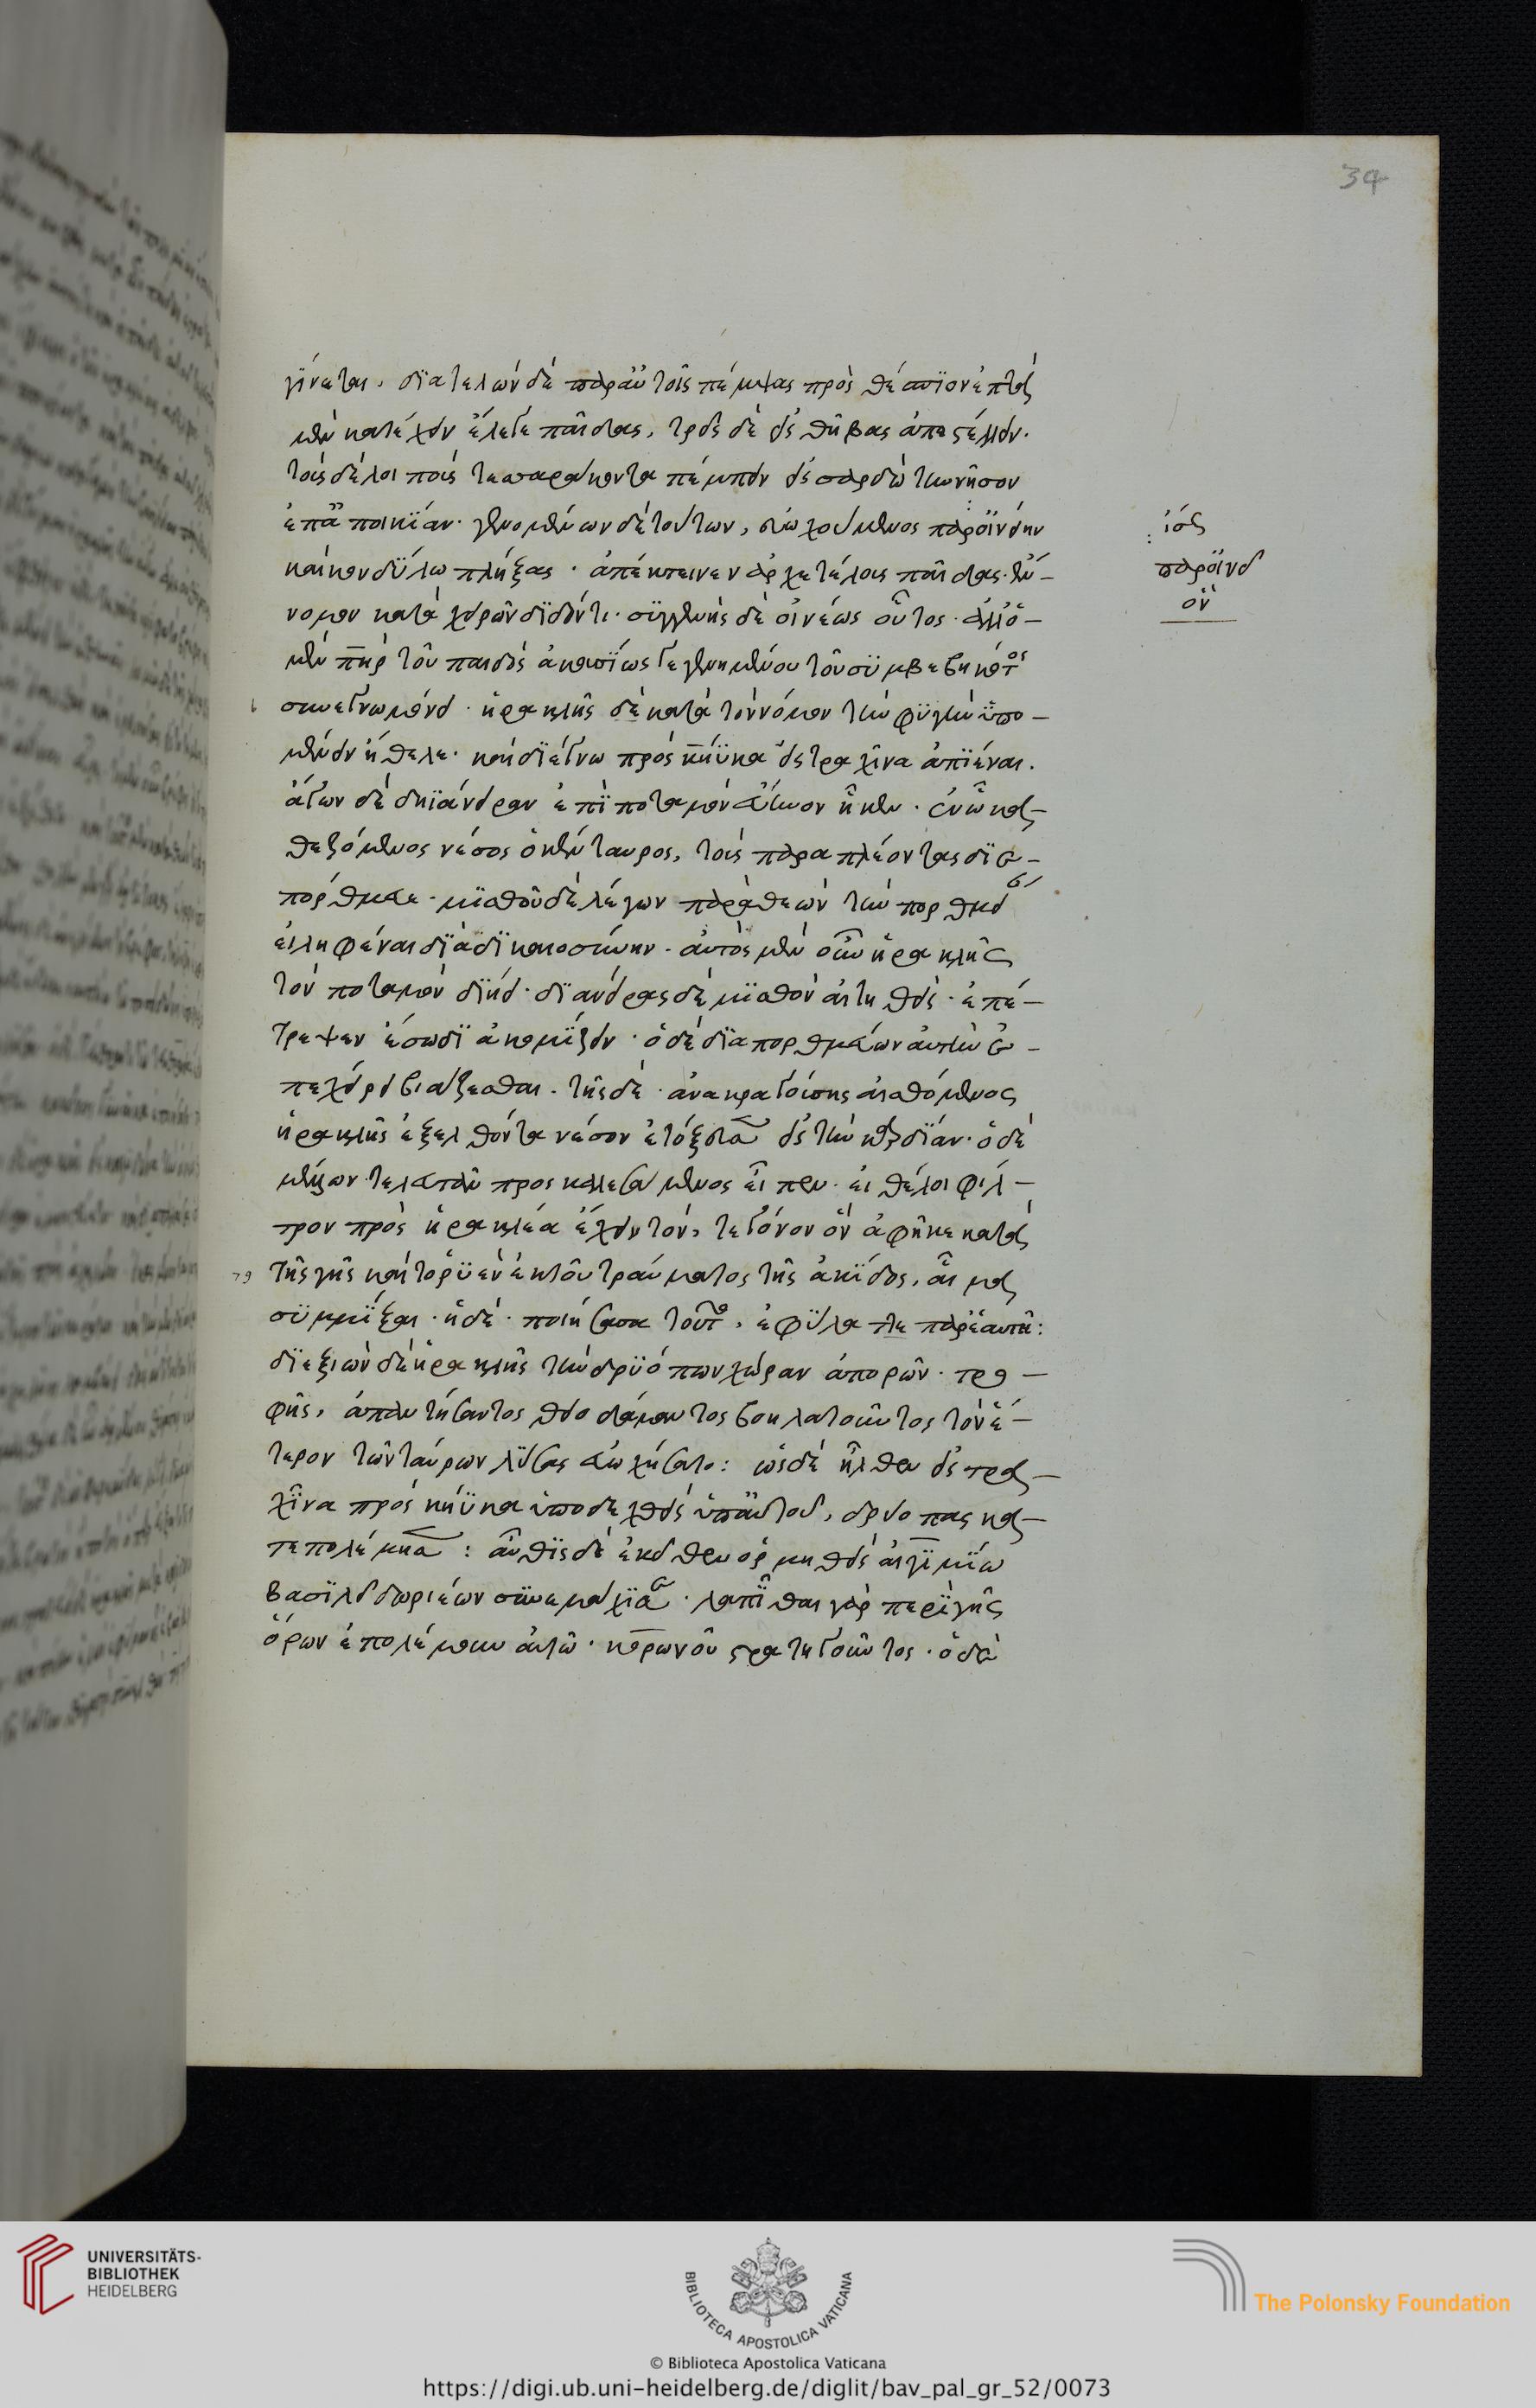 34
γίνεται. διατελών δὲ παραὐτοῖς πέμψας πρὸς θέσπϊον ἑπτὰ
μὲν κατέχειν ἔλεγε παῖδας, τρεῖς δὲ εἰς θήβας ἀποστέλλειν.
τοὺς δὲ λοιποὺς τεσσαράκοντα πέμπειν εἰς σαρδὼ τὴν νῆσον
ἐπἀποικΐαν. γενομένων δὲ τούτων, εὐωχούμενος παροϊνεῖν
καὶ κονδύλω πλήξας. ἀπέκτεινεν ἀρχετέλους παῖδας. εὔ-
νομον κατὰ χειρῶν διδόντι. συγγενὴς δὲ οἰνέως οὗτος. ἀλλὁ-
μὲν πηρ τοῦ παιδὸς ἀκουσίως γεγενημένου τοῦ συμβεβηκότος
συνεγνωμόνει. ἡρακλῆς δὲ κατὰ τὸν νόμον τὴν φυγὴν ὑπο-
μένειν ἤθελε. καὶ διέγνω πρὸς κήϋκα εἰς τραχῖνα ἀπϊέναι.
ἄγων δὲ δηϊάνειραν ἐπὶ ποταμὸν εὔηνον ἧκεν. ἐν ὧ κα-
θεζόμενος νέσος ὁ κένταυρος, τοὺς παραπλέοντας δϊε-
πόρθμευε. μισθοῦ δὲ λέγων παρὰ θεῶν τὴν πορθμεί
εἰληφέναι διὰ δικαιοσύνην. αὐτὸς μὲν οὖν ἡρακλῆς
τὸν ποταμὸν διήει. διάνειρας δὲ μισθὸν αἰτηθεὶς. ἐπέ-
τρεψεν ἔσω διἀκομίζειν. ὁ δὲ διαπορθμεύων αὐτὴν ἐ-
πεχείρει βιάζεσθαι. τῆς δὲ. ἀνακραγούσης αἰσθόμενος
ἡρακλῆς ἐξελθόντα νέσον ἐτόξευσεν εἰς τὴν καρδΐαν. ὁ δὲ
μέλλων τελευτᾶν προσκαλεσάμενος εἶπεν. εἰ θέλοι φίλ-
τρον πρὸς ἡρακλέα ἔχειν τόν, τε γόνον ὃν ἀφῆκε κατὰ
τῆς γῆς καὶ τὸ ῥυὲν ἐκ τοῦ τραύματος τῆς ἀκίδος, αἷμα
συμμῖξαι. ἡ δὲ. ποιήσασα τοῦτο, ἐφύλαττε παρἑαυτῆ:
διεξιὼν δὲ ἡρακλῆς τὴν δρυόπων χώραν ἀπορῶν. τρο-
φῆς, ἀπαντήσαντος θειοδάμαντος βοηλατοῦντος τὸν ἕ-
τερον τῶν ταύρων λύσας εὐωχήσατο: ὡς δὲ ἦλθεν εἰς τρα-
χῖνα πρὸς κήϋκα ὑποδεχθεὶς ὑπαὐτοῦ, δρύοπας κα-
τεπολέμησεν: αὖθις δὲ ἐκεῖθεν ὁρμηθεὶς αἰγιμίω
βασιλεῖ δωριέων συνεμάχησε. λαπίθαι γὰρ περὶ γῆς
ὅρων ἐπολέμουν αὐτῶ. κορώνου στρατηγοῦντος. ὁ δὲ
ἰός
παροϊνεῖ
ὄν
79
UNIVERSITÄTS-
BIBLIOTHEK
HEIDELBERG
BIBLIOTECA APOSTOLICA VATICANA
© Biblioteca Apostolica Vaticana
The Polonsky Foundation
https://digi.ub.uni-heidelberg.de/diglit/bav_pal_gr_52/0073